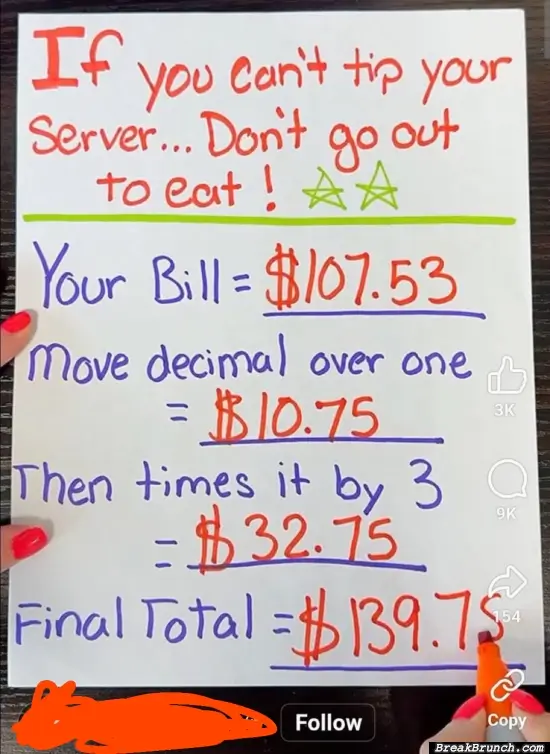 If you can't tip your
Server... Don't go out
to eat!
Your Bill = $107.53
Move decimal over one
= $10.75
Then times it by 3
= $32.75
Final Total = $139.75
3K
9K
154
Follow
Copy
BreakBrunch.com